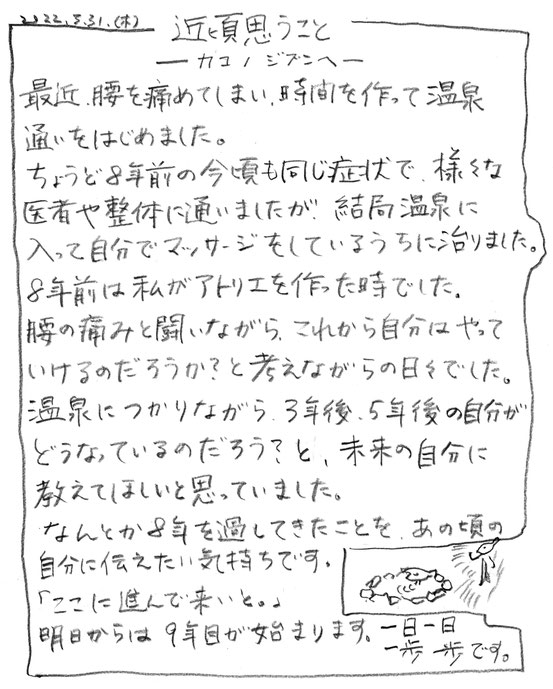 2022.5.31.(木)
近頃思うこと
ーカコノジブンヘー
最近、腰を痛めてしまい、時間を作って温泉
通いをはじめました。
ちょうど8年前の今頃も同じ症状で、様々な
医者や整体に通いましたが、結局温泉に
入って自分でマッサージをしているうちに治りました。
8年前は私がアトリエを作った時でした。
腰の痛みと闘いながら、これから自分はやって
いけるのだろうか?と考えながらの日々でした。
温泉につかりながら、3年後、5年後の自分が
どうなっているのだろう?と、未来の自分に
教えてほしいと思っていました。
なんとか8年を過してきたことを、あの頃の
自分に伝えたい気持ちです。
「ここに進んで来いと。」
明日からは9年目が始まります。一日一日
一歩一歩です。